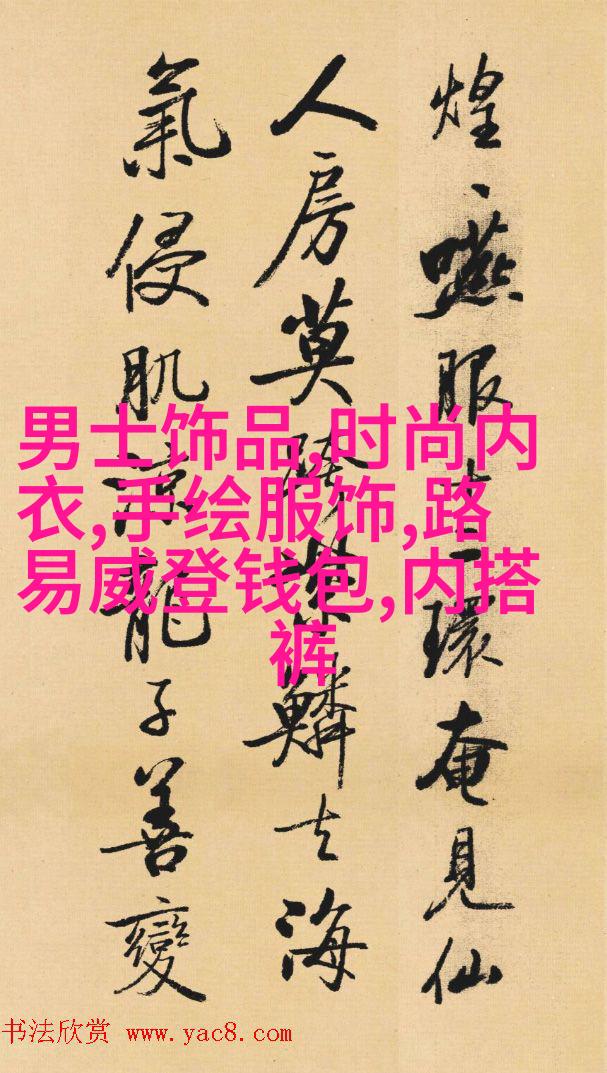 煌、嚥服十二環奄見仙
人房莫跨紫鱗去海
氣侵肌涼龍子善變
男士饰品,时尚内
衣,手绘服饰,路
易威登钱包,内搭
裤
书法欣赏 www.yac8.com